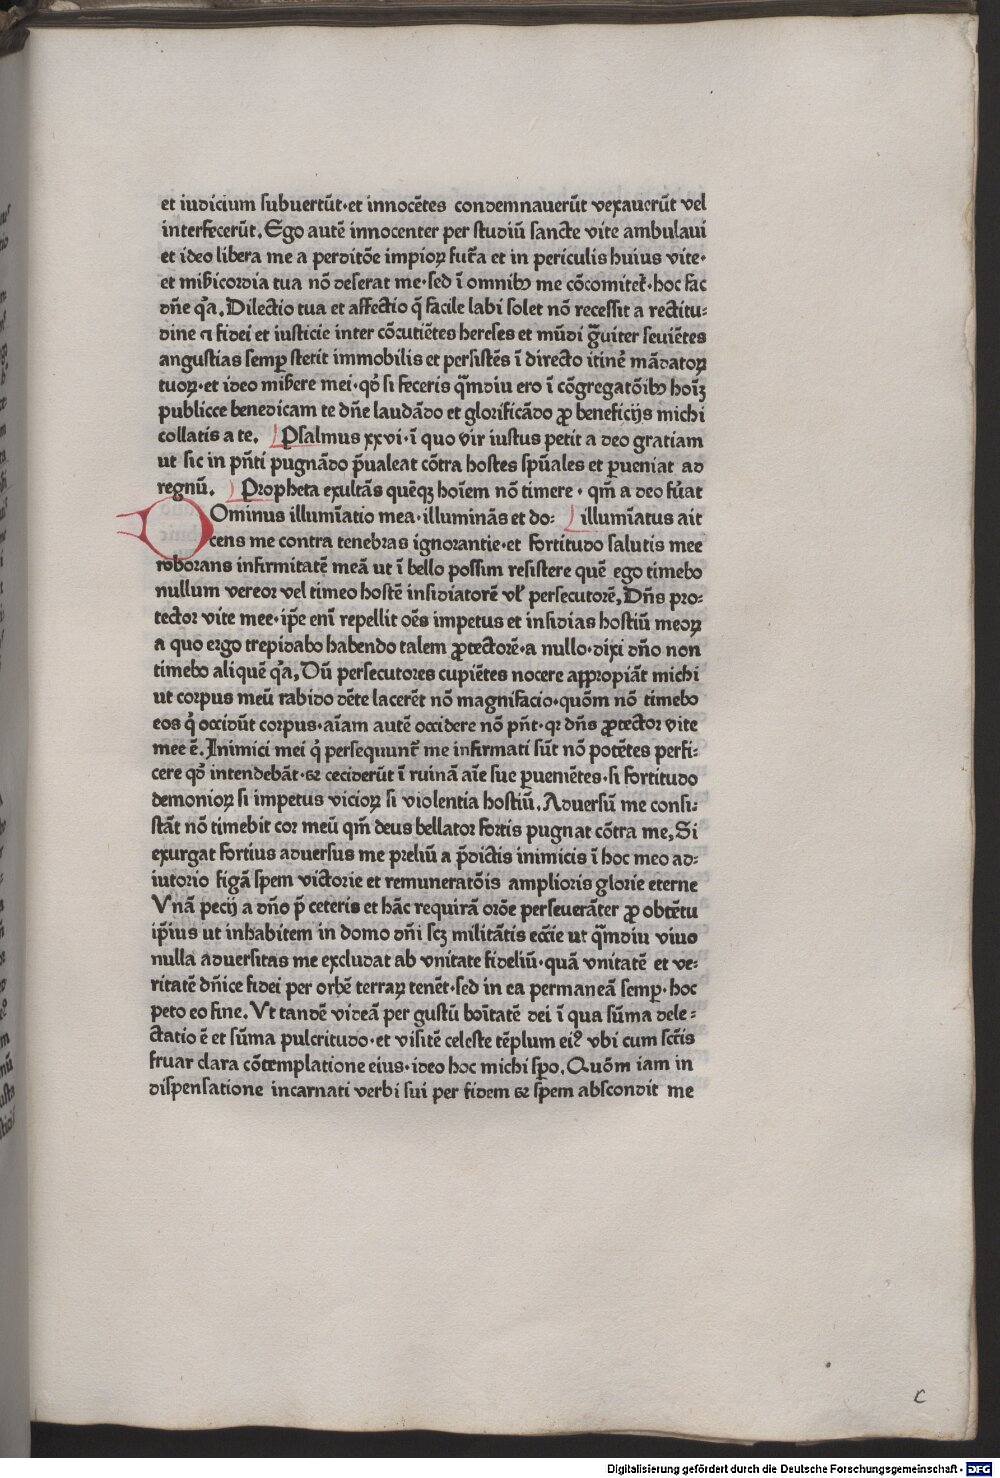 et iudicium subuertūt·et innocētes condemnauerūt vexauerūt vel
interfecerūt. Ego autē innocenter per studiū sancte vite ambulaui
et ideo libera me a perditōe impioꝝ fut̄a et in periculis huius vite·
et mis̄icordia tua nō deserat me·sed ī omnibꝰ me cōcomitet̄·hoc fac
dn̄e q̄a. Dilectio tua et affectio q̄ facile labi solet nō recessit a rectitu⸗
dine ⁊ fidei et iusticie inter cōcutiētes hereses et mūdi ḡuiter seuiētes
angustias semꝑ stetit immobilis et persistēs ī directo itinē mādatoꝝ
tuoꝝ·et ideo mis̄ere mei·qd̓ si feceris q̄mdiu ero ī cōgregatōibꝰ hoīꝫ
publicce benedicam te dn̄e laudādo et glorificādo ꝓ beneficijs michi
collatis a te. Psalmus xxvi·ī quo vir iustus petit a deo gratiam
ut sic in pn̄ti pugnādo p̄ualeat cōtra hostes sp̄uales et ꝑueniat ad
regnū. Propheta exultās quēqꝫ hoīem nō timere · qm̄ a deo fūat
DOminus illumīatio mea·illuminās et do⸗ illumīatus ait
cens me contra tenebras ignorantie·et fortitudo salutis mee
roborans infirmitatē meā ut ī bello possim resistere quē ego timebo
nullum vereor vel timeo hostē insidiatorē vl̓ persecutorē, Dn̄s pro⸗
tector vite mee·ip̄e enī repellit oēs impetus et insidias hostiū meoꝝ
a quo ergo trepidabo habendo talem ꝓtectorē·a nullo·dixi dn̄o non
timebo aliquē q̄a, Dū persecutores cupiētes nocere apꝑopiāt michi
ut corpus meū rabido dēte lacerēt nō magnifacio·quōm nō timebo
eos q̓ occidūt corpus·aīam autē occidere nō pn̄t·qꝛ dn̄s ꝓtector vite
mee ē. Inimici mei q̓ persequunt̄ me infirmati sūt nō potētes perfi⸗
cere qd̓ intendebāt·⁊ ceciderūt ī ruinā aīe sue ꝑueniētes·si fortitudo
demonioꝝ si impetus vicioꝝ si violentia hostiū. Aduersū me consi⸗
stāt nō timebit cor meū qm̄ deus bellator fortis pugnat cōtra me, Si
exurgat fortius aduersus me preliū a p̄dictis inimicis ī hoc meo ad⸗
iutorio figā spem victorie et remuneratōis amplioris glorie eterne
Vnā pecij a dn̄o p̄ ceteris et hāc requirā orōe perseuerāter ꝓ obtētu
ip̄ius ut inhabitem in domo dn̄i scꝫ militātis ecc̄ie ut q̄mdiu viuo
nulla aduersitas me excludat ab vnitate fideliū·quā vnitatē et ve⸗
ritatē dn̄ice fidei per orbē terraꝝ tenēt·sed in ea permaneā semꝑ·hoc
peto eo fine. Vt tandē videā per gustū bōitatē dei ī qua sūma dele⸗
ctatio ē et sūma pulcritudo·et visitē celeste tēplum eiꝰ vbi cum sc̄tis
fruar clara cōtemplatione eius·ideo hoc michi sp̄o. Quōm iam in
dispensatione incarnati verbi sui per fidem ⁊ spem abscondit me
c
Digitalisierung gefördert durch die Deutsche Forschungsgemeinschaft - DFG